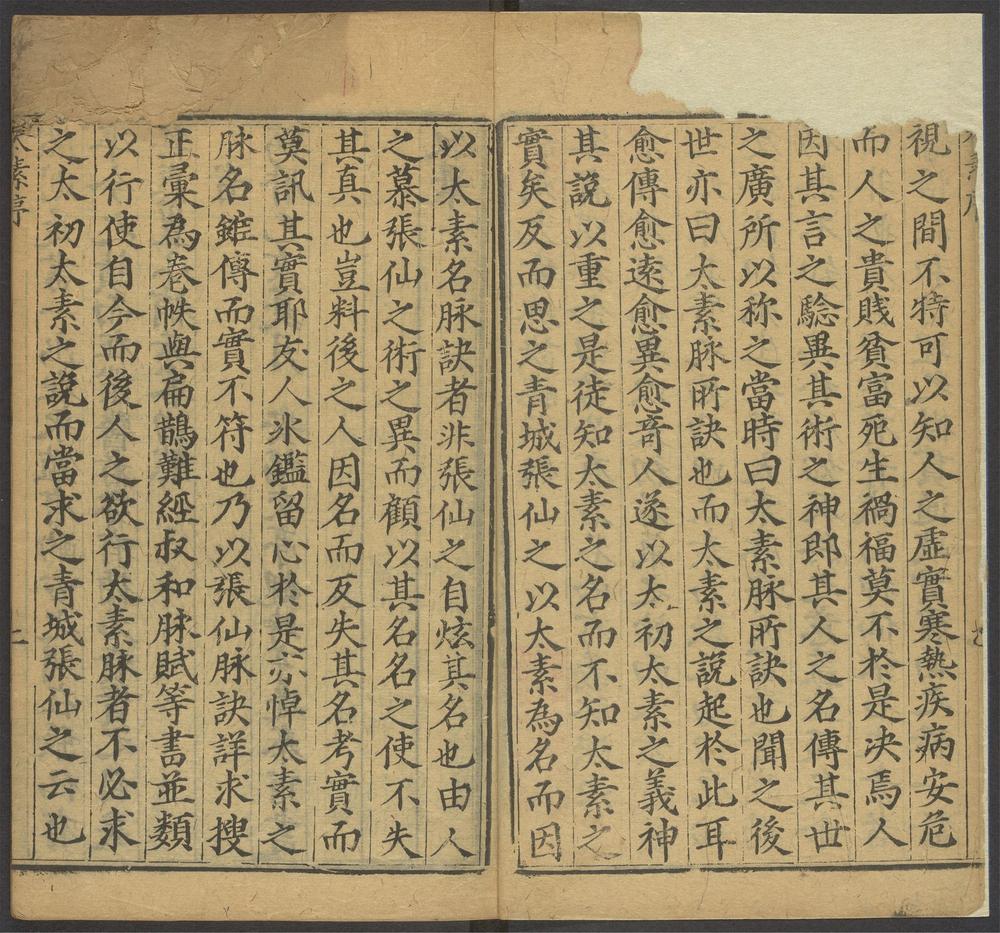 視之間不特可以知人之虛實寒熱疾病安危
而人之貴賤貧富死生禍福莫不於是决焉人
因其言之驗異其術之神即其人之名傳其世
之廣所以称之當時曰太素脉所訣也聞之後
世亦曰太素脉所訣也而太素之說起於此耳
愈傳愈遠愈異愈竒人遂以太初太素之義神
其說以重之是徒知太素之名而不知太素之
實矣反而思之青城張仙之以太素為名而因
以太素名脉訣者非張仙之自炫其名也由人
之慕張仙之術之異而顧以其名名之使不失
其真也豈料後之人因名而反失其名考實而
莫訊其實耶友人氷鑑留心於是亦悼太素之
脉名雖傳而實不符也乃以張仙脉訣詳求搜
正彚為卷帙與扁鵲難經叔和脉賦等書並類
以行使自今而後人之欲行太素脉者不必求
之太初太素之說而當求之青城張仙之云也
太素序
二